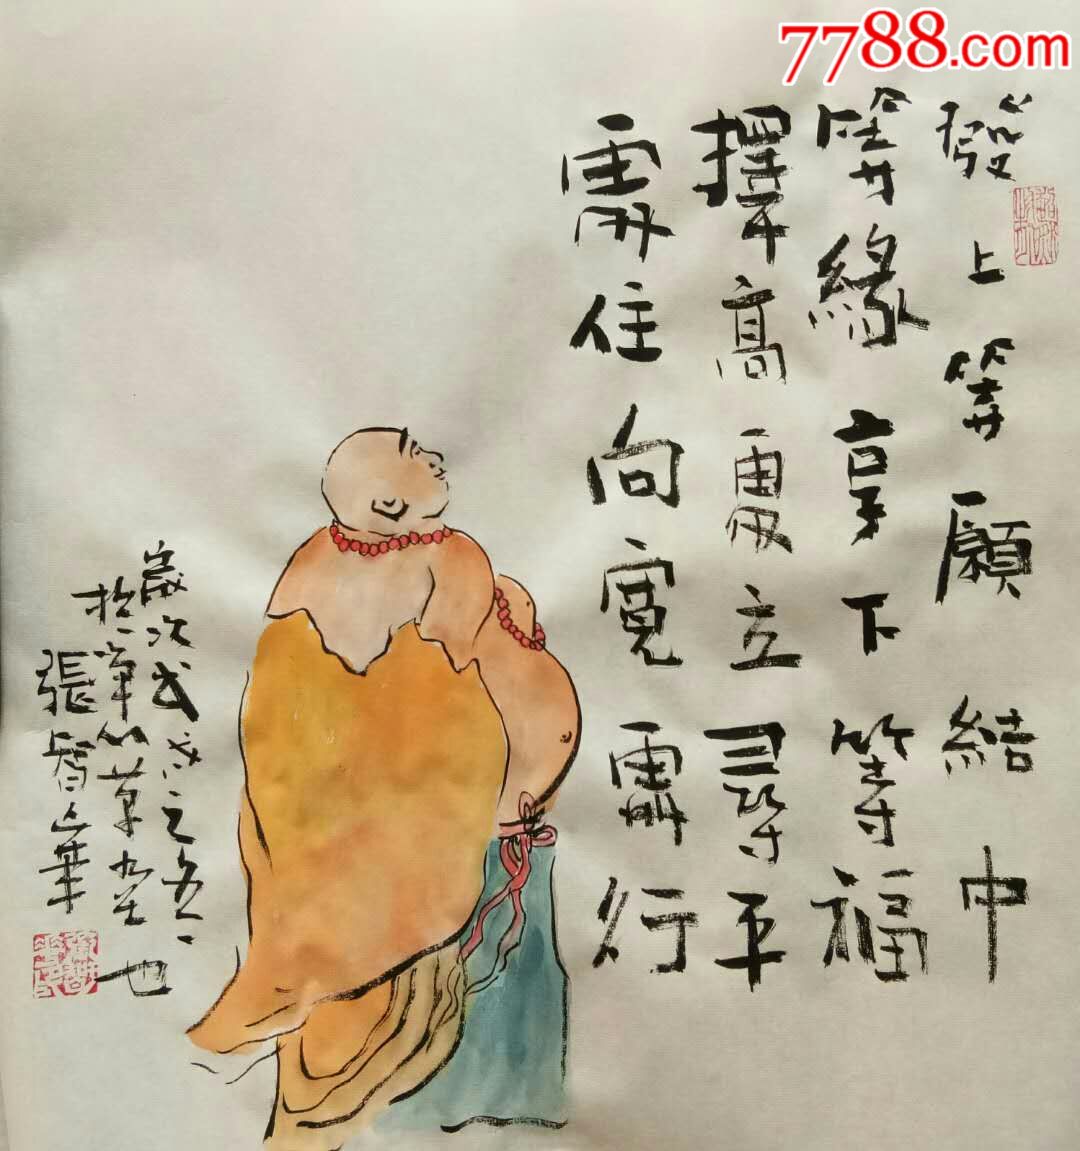 7788.com
發上等願結中
等緣享下等福
擇高處立尋平
處住向寬處行
歲次戊戌之冬
於草堂也
張智華